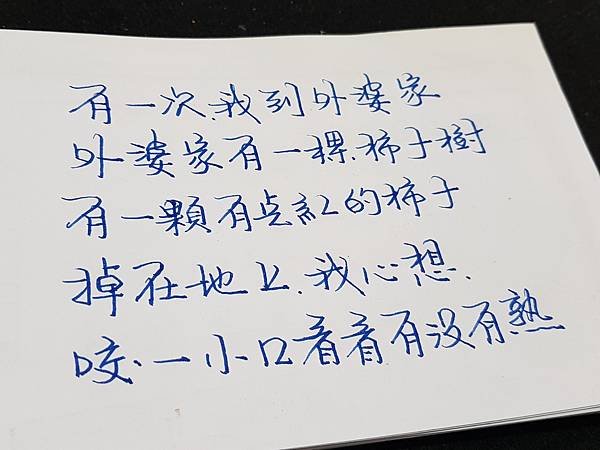 有一次.我到外婆家
外婆家有一棵.柿子樹
有一顆有点紅的柿子
掉在地上.我心想.
咬.一小口看看有没有熟